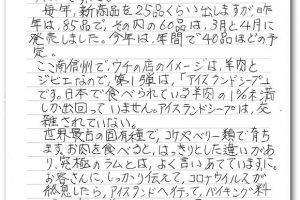 毎年、新商品を25品くらい出しますが昨
年は、85品で、その内の60品は、3月と4月に
発売しました。今年は、年間で40品ほどの予
定。
ここ南信州で、ワチの店のイメージは、羊肉と
ジビエなので、第1弾は、「アイスランドシープ」
です。日本で食べられている羊肉の1%未満
しか出回っていません。アイスランドシープは、交
雑されていない。
世界最古の固有種で、コケやベリー類で育ち
ますお肉を食べると、はっきりとした違いがあ
り、究極のラムとは、よく言いあてていますに。
お客さんに、しっかり伝えて、コロナウイルスが
終息したら、アイスランドへ行って、バイキング料